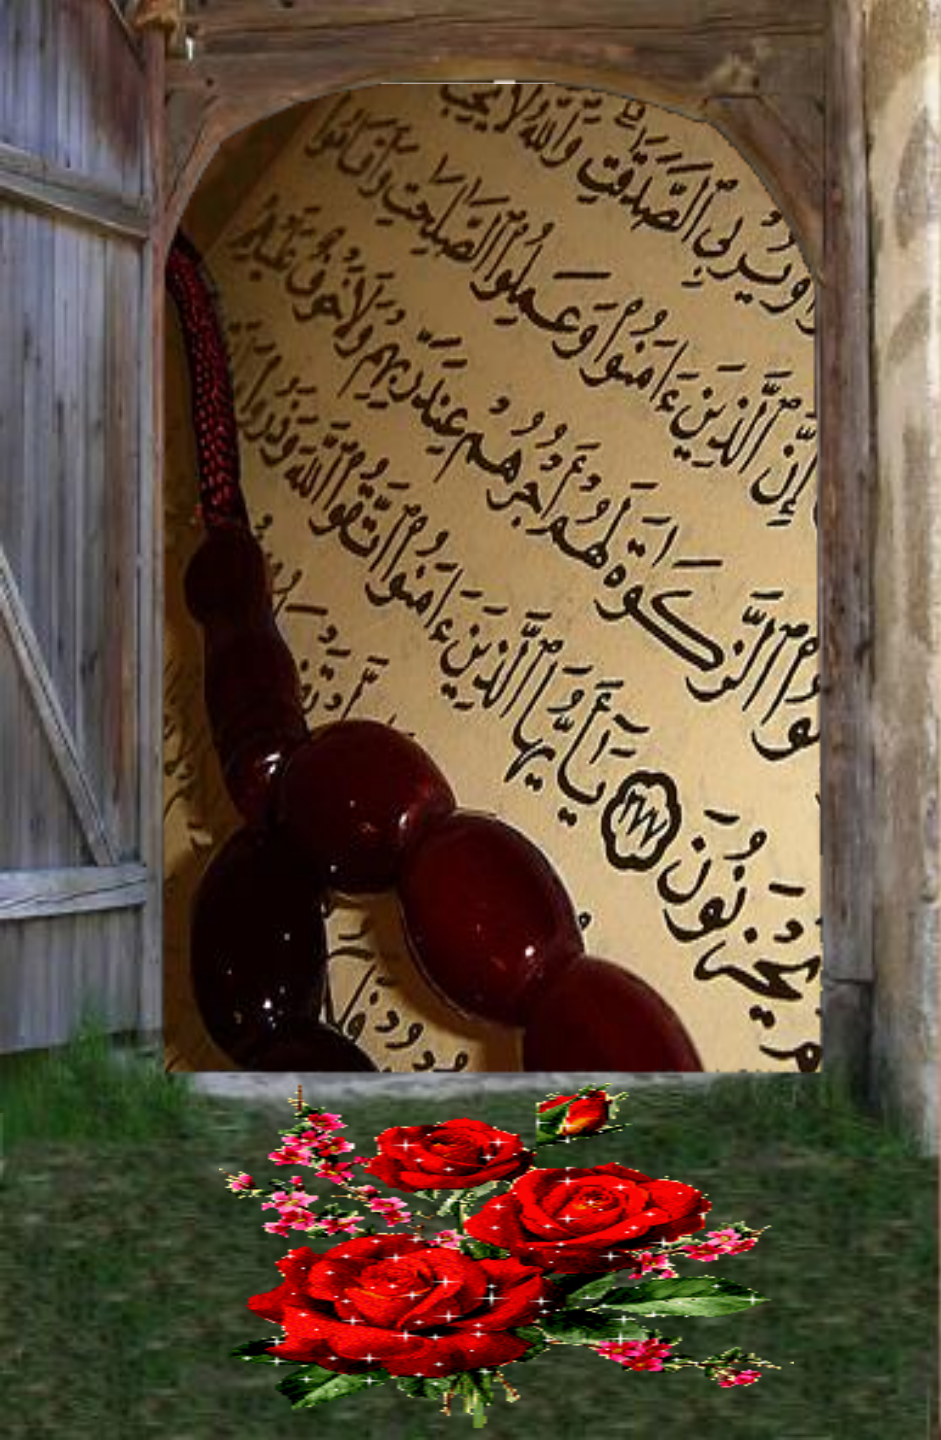 وَيُرْبِي الصَّدَقَٰتِ وَاللَّهُ لَا يُحِبُّ
إِنَّ الَّذِينَ ءَامَنُوا وَعَمِلُوا الصَّٰلِحَٰتِ وَأَقَامُوا
الزَّكَوٰةَ لَهُمْ أَجْرُهُمْ عِندَ رَبِّهِمْ وَلَا خَوْفٌ عَلَيْهِمْ
يَحْزَنُونَ ٢٧٧ يَٰٓأَيُّهَا الَّذِينَ ءَامَنُوا اتَّقُوا اللَّهَ وَذَرُوا